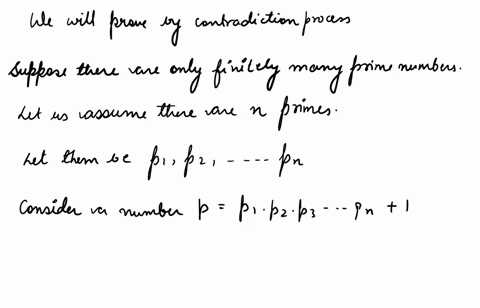 We will prove by contradiction process
Suppose there are only finitely many prime numbers.
Let us assume there are n primes.
Let them be p1, p2, ----- pn
Consider a number p = p1 . p2 . p3 --- pn + 1